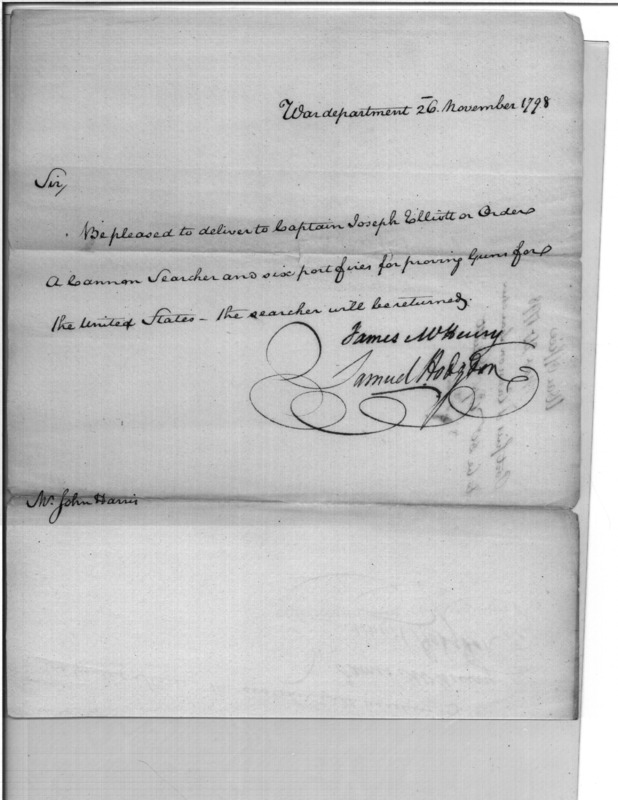 War department 26. November 1798
Sir,
Be pleased to deliver to Captain Joseph Elliott or Order
A Cannon Searcher and six port fires for proving Guns for
the United States – the searcher will be returned.
James McHenry
Samuel Hodgdon
Mr. John Harris